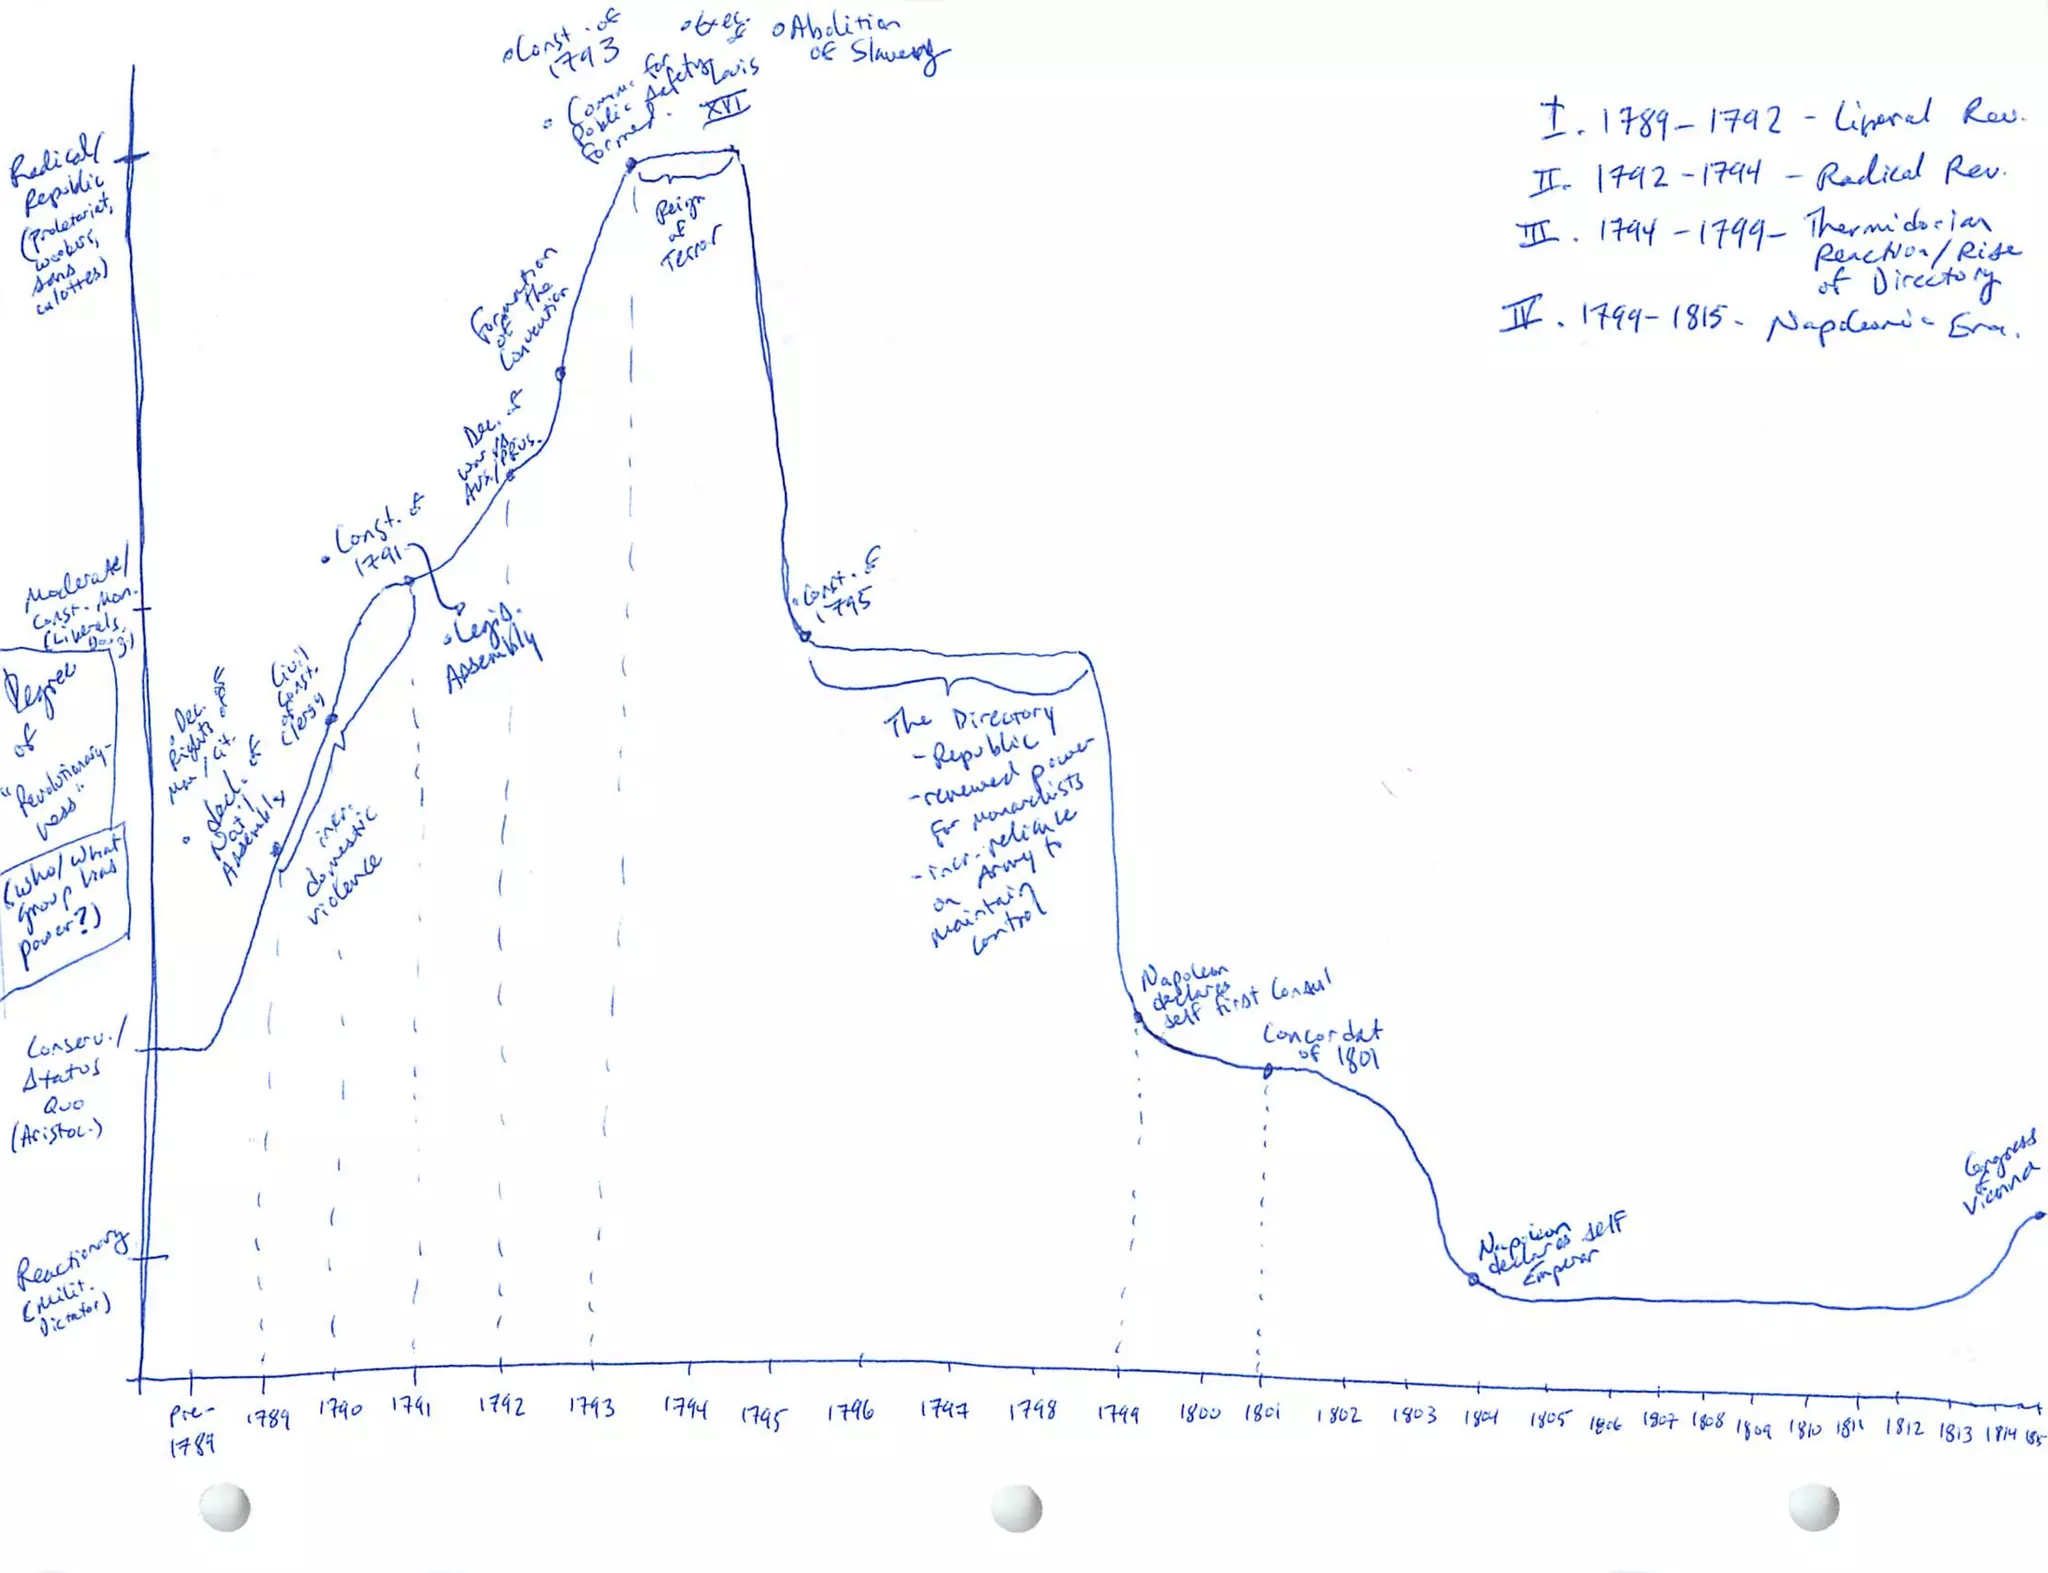 Const. of
1793
Comm. for
Public Safety
formed.
Exec.
of
Louis
XVI
Abolition
of Slavery
I. 1789-1792 - Liberal Rev.
II. 1792-1794 - Radical Rev.
III. 1794-1799- Thermidorian
Reaction/Rise
of Directory
IV. 1799-1815- Napoleonic Era.
Radical/
Republic
(proletariat,
workers,
sans
culottes)
Reign
of
Terror
Formation
of the
Convention
Dec. of
war/s
Aus./Prus.
Const. of
1791
Legis.
Assembly
Moderate/
Const. Mon.
(Liberals,
Bourg.)
Degree
of
"Revolutionary-
ness"
(who/what
group has
power?)
Dec.
Rights of
Man/Cit.
decl. of
Nat'l
Assembly
Civil
Const.
of
Clergy
incr.
domestic
violence
Const. of
1795
The Directory
-Republic
-renewed power
for monarchists
-incr. reliance
on Army to
maintain
control
Napoleon
declares
self First Consul
Concordat
of 1801
Conserv./
Status
Quo
(Aristoc.)
Reactionary
(Milit.
Dictator)
Napoleon
declares self
Emperor
Congress
of
Vienna
Pre-
1789
1789 1790 1791 1792 1793 1794 1795 1796 1797 1798 1799 1800 1801 1802 1803 1804 1805 1806 1807 1808 1809 1810 1811 1812 1813 1814 1815